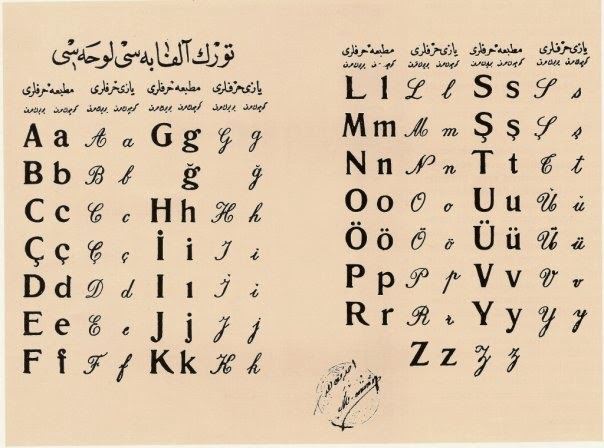 تورك آلفابه سی لوحه سی
یازی حرفلری مطبعه حرفلری یازی حرفلری مطبعه حرفلری
A a A a G g G g
B b B b ğ ğ
C c C c H h H h
Ç ç Ç ç İ i İ i
D d D d I ı I i
E e E e J j J j
F f F f K k K k
یازی حرفلری مطبعه حرفلری یازی حرفلری مطبعه حرفلری
L l L l S s S s
M m M m Ş ş Ş ş
N n N n T t T t
O o O o U u U u
Ö ö Ö ö Ü ü Ü ü
P p P p V v V v
R r R r Y y Y y
Z z Z z